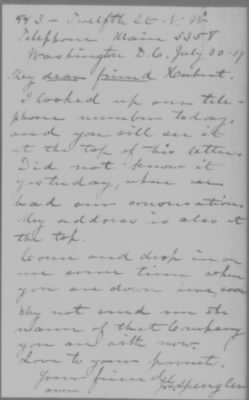 943 - Twelfth St. N. W
Telephone Main 3358
Washington D.C. July 30-17
My dear friend Herbert.
I looked up our tele-
phone number today,
and you will see it
at the top of this letter.
Did not know it
yesterday, when we
had our conversation
My address is also at
the top.
Come and drop in on
me some time when
you are down here, and
Why not send me the
name of that Company
you are with now.
Love to your parents.
Your friend
J. Spengler
over